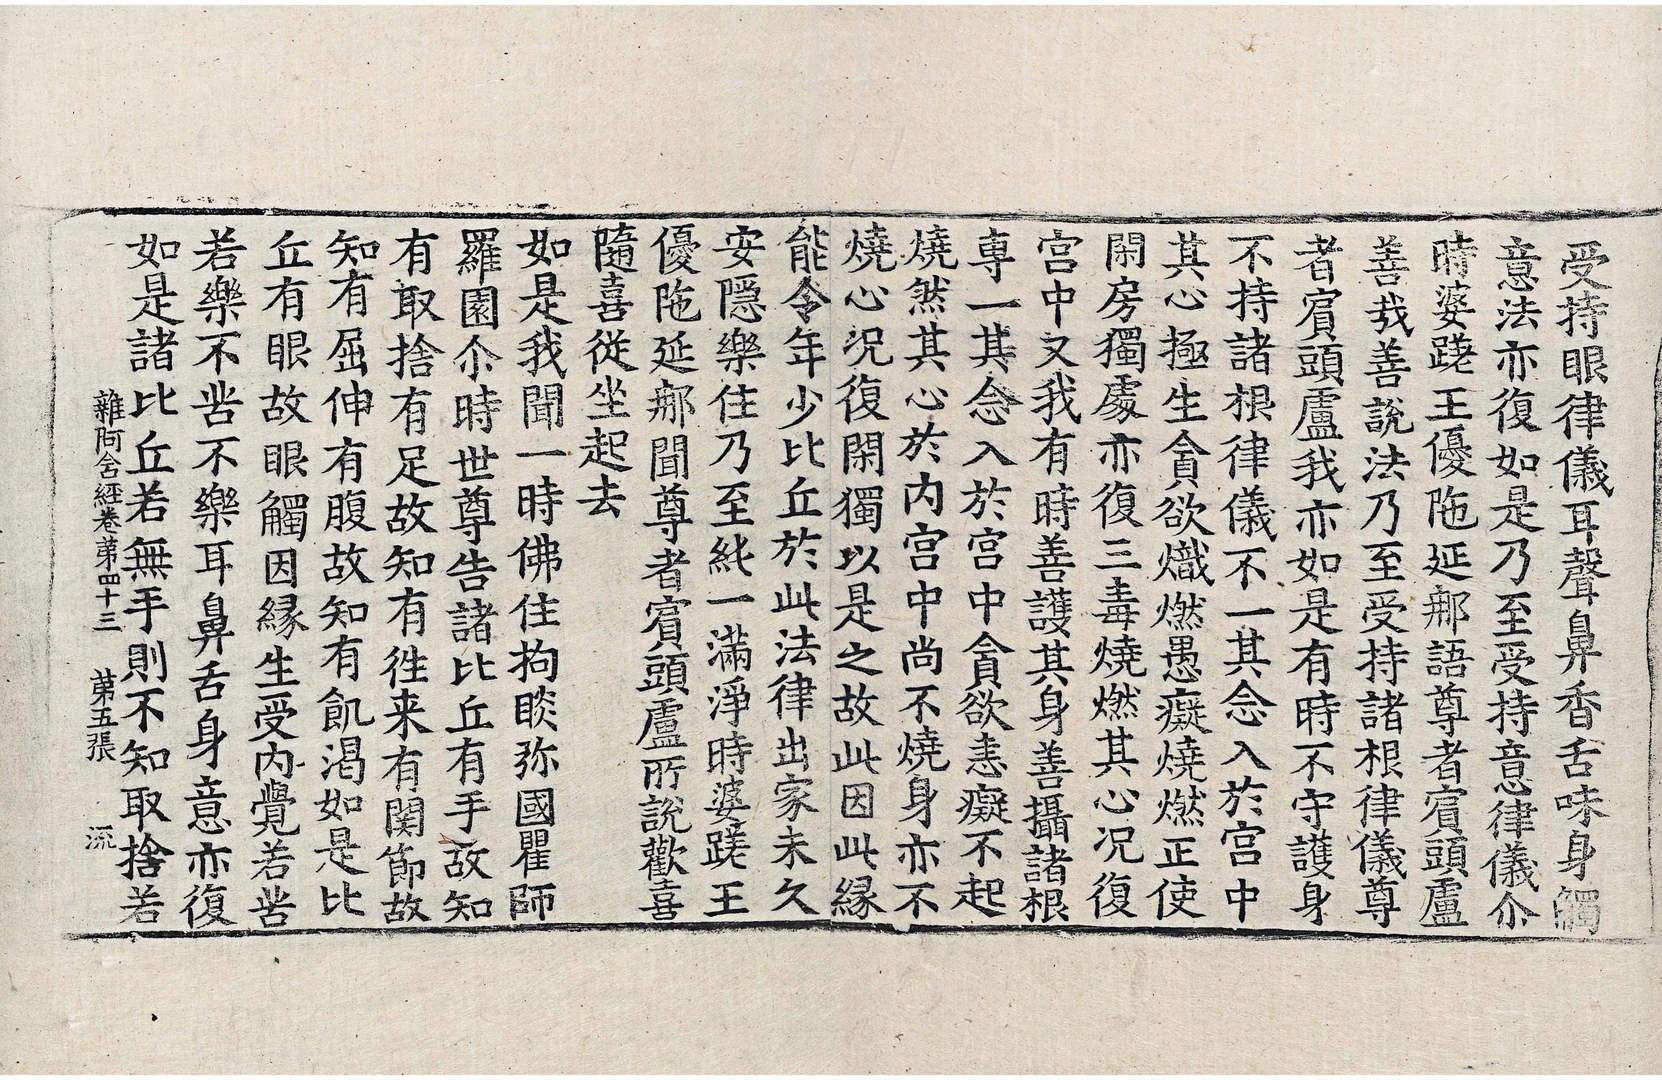 受持眼律儀耳聲鼻香舌味身觸
意法亦復如是乃至受持意律儀尒
時婆蹉王優陁延那語尊者賔頭盧
善㢤善說法乃至受持諸根律儀尊
者賔頭盧我亦如是有時不守護身
不持諸根律儀不一其念入於宮中
其心極生貪欲熾燃愚癡燒燃正使
閑房獨處亦復三毒燒燃其心况復
宮中又我有時善護其身善攝諸根
專一其念入於宮中貪欲恚癡不起
燒然其心於内宮中尚不燒身亦不
燒心况復閑獨以是之故此因此縁
能令年少比丘於此法律出家未久
安隱樂住乃至純一滿淨時婆蹉王
優陁延那聞尊者賔頭盧所說歡喜
隨喜従坐起去
如是我聞一時佛住拘睒弥國瞿師
羅園尒時世尊告諸比丘有手故知
有取捨有足故知有徃来有関節故
知有屈伸有腹故知有飢渴如是比
丘有眼故眼觸因縁生受内覺若苦
若樂不苦不樂耳鼻舌身意亦復
如是諸比丘若無手則不知取捨若
雜阿含經卷苐四十三　苐五張　流